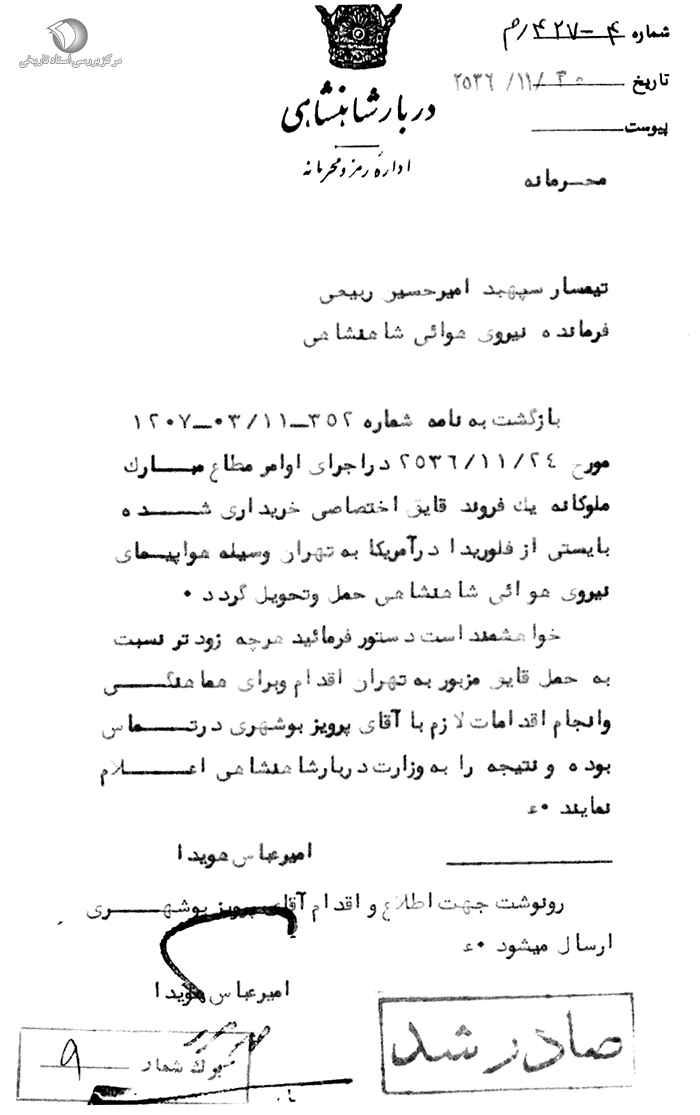 مرکز بررسی اسناد تاریخی
شماره ۴-۴۲۷/م
تاریخ ۲۵۳۶/۱۱/۳۰
پیوست
دربار شاهنشاهی
اداره رمز و محرمانه
محرمانه
تیمسار سپهبد امیرحسین ربیعی
فرمانده نیروی هوائی شاهنشاهی
بازگشت به نامه شماره ۳۵۲-۰۳/۱۱-۱۲۰۷
مورخ ۲۵۳۶/۱۱/۲۴ در اجرای اوامر مطاع مبارك
ملوکانه یك فروند قایق اختصاصی خریداری شده
بایستی از فلوریدا در آمریکا به تهران وسیله هواپیمای
نیروی هوائی شاهنشاهی حمل وتحویل گردد ۰
خواهشمند است دستور فرمائید هرچه زودتر نسبت
به حمل قایق مزبور به تهران اقدام وبرای هماهنگی
وانجام اقدامات لازم با آقای پرویز بوشهری در تماس
بوده و نتیجه را به وزارت دربار شاهنشاهی اعلام
نمایند ۰ء
امیرعباس هویدا
رونوشت جهت اطلاع و اقدام آقای پرویز بوشهری
ارسال میشود ۰ء
امیرعباس هویدا
صادر شد
شمار ۹